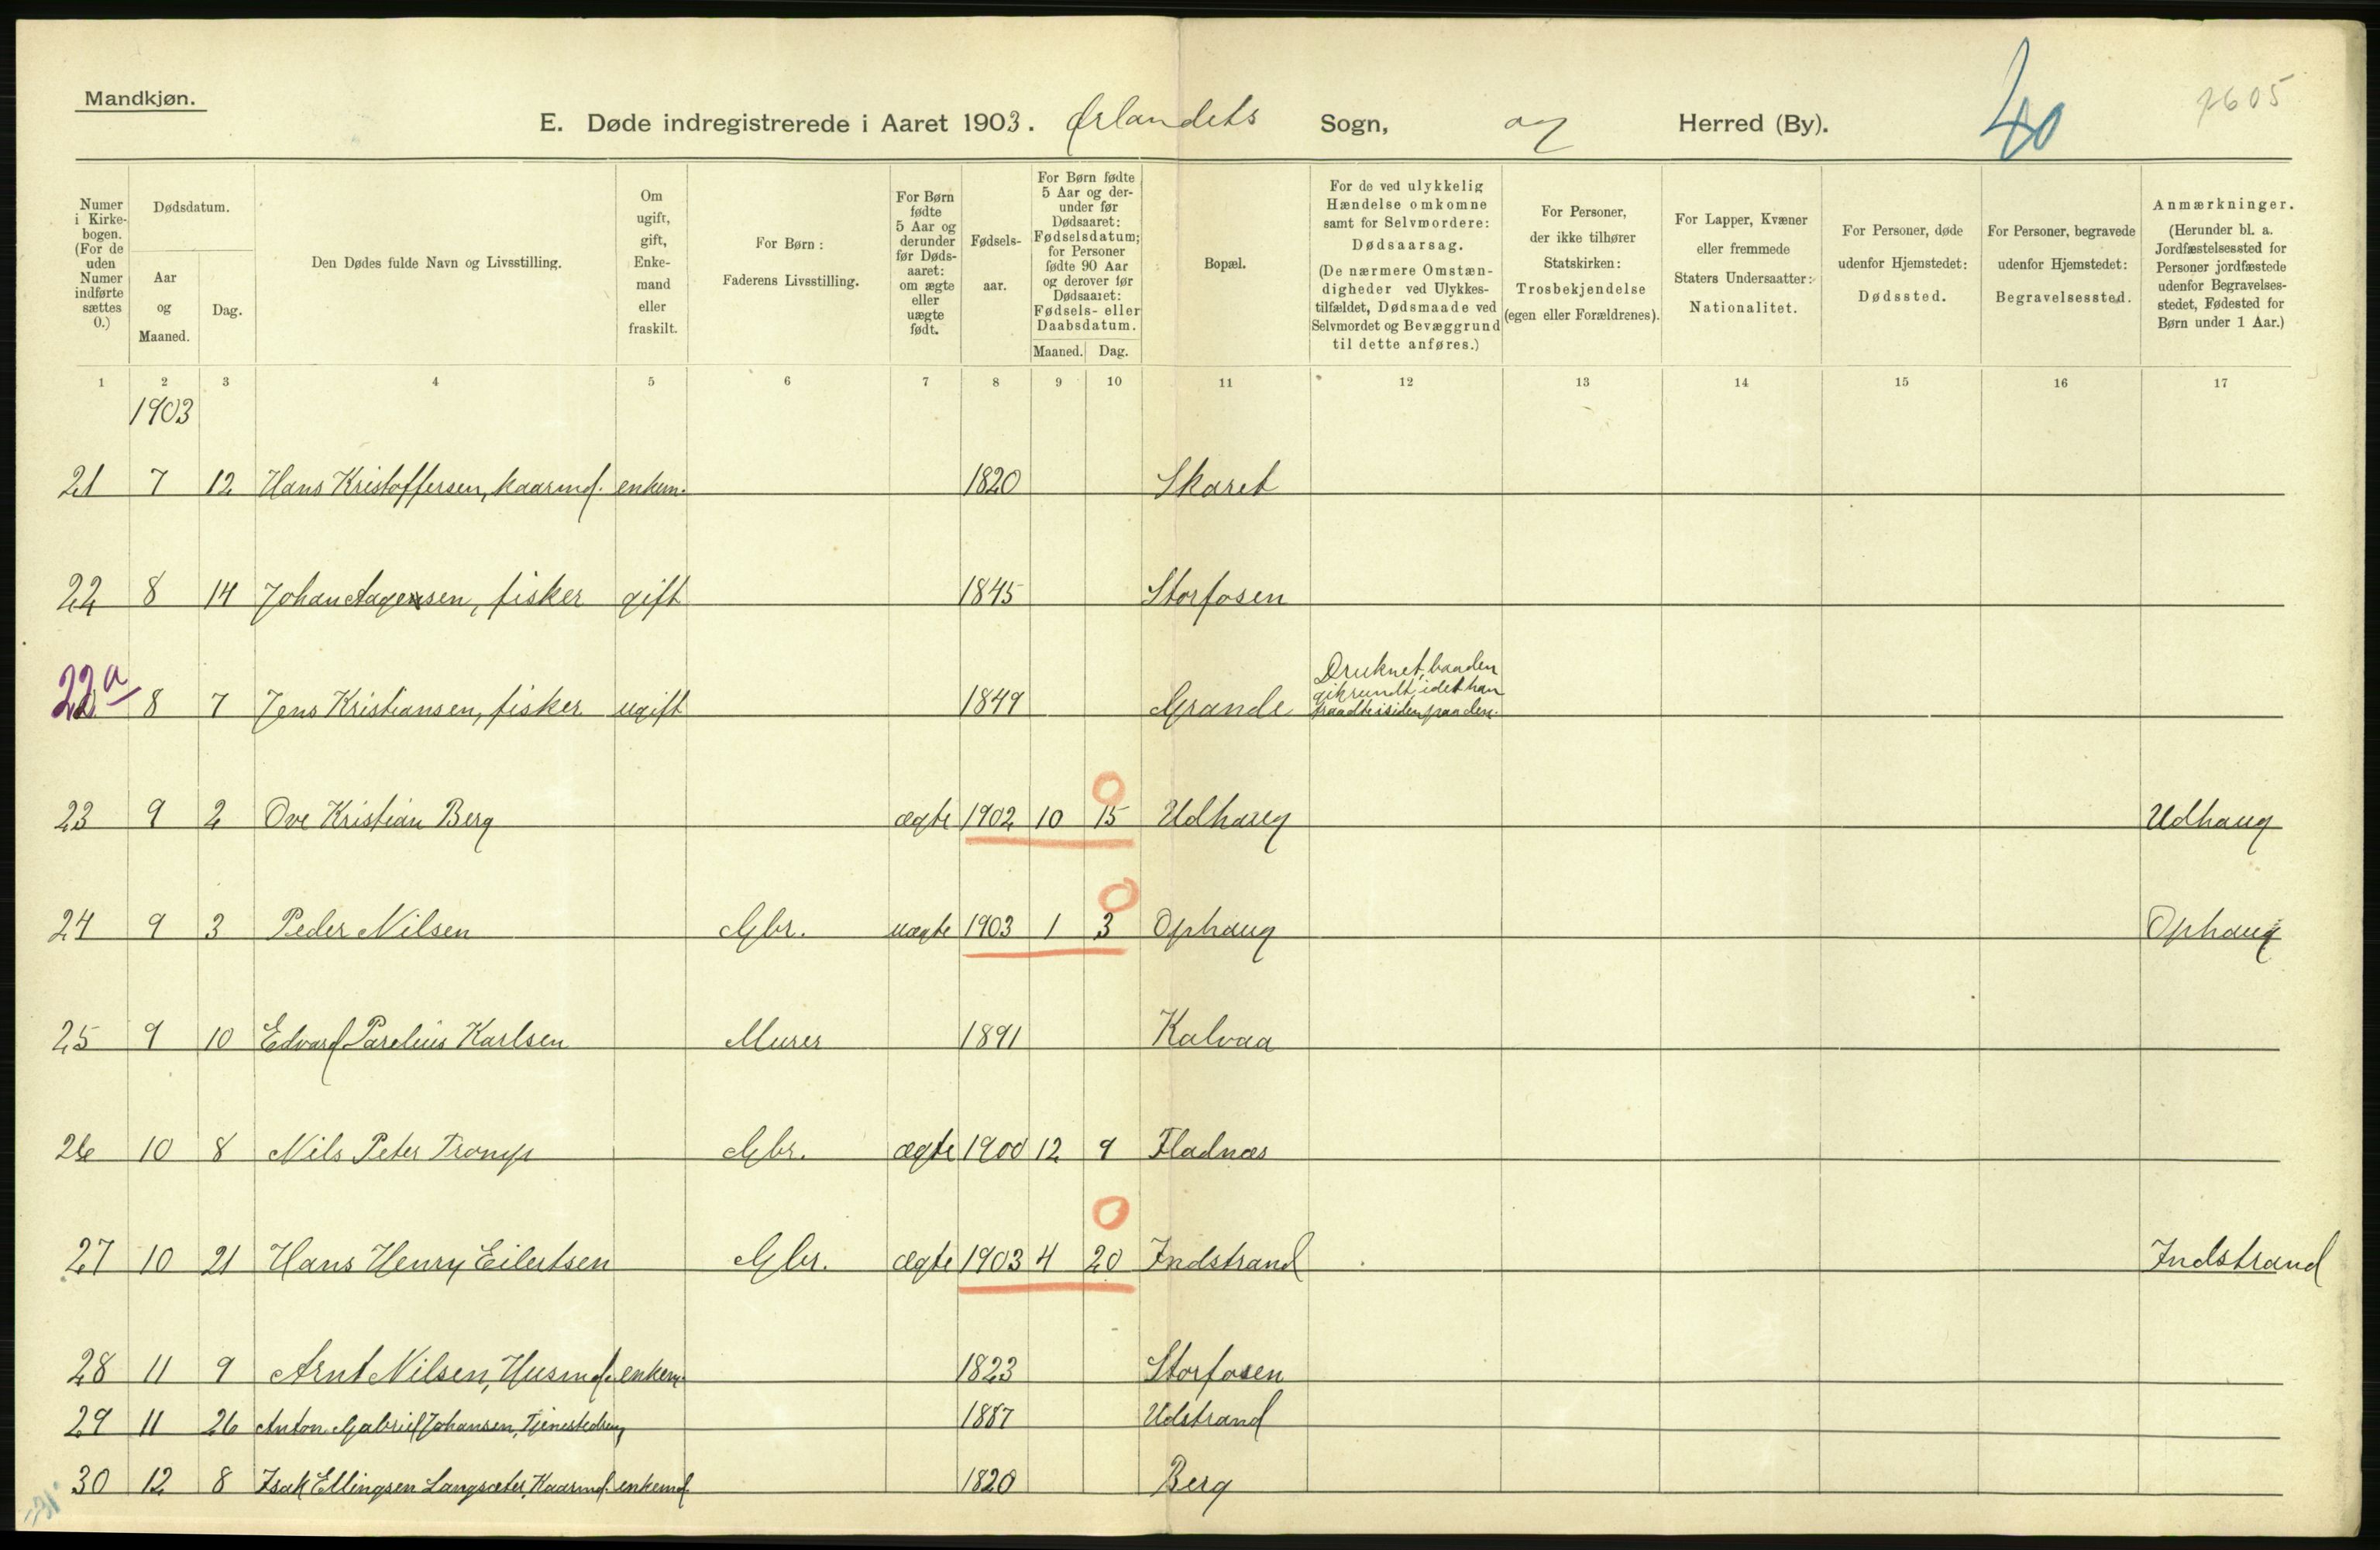 Mandkjøn.
E. Døde indregistrerede i Aaret 1903. Ørlandets Sogn, og Herred (By). 40 2605
Numer i Kirkebogen. (For de uden Numer indførte sættes 0.)
Dødsdatum.
Aar og Maaned.
Dag.
Den Dødes fulde Navn og Livsstilling.
Om ugift, gift, Enkemand eller fraskilt.
For Børn: Faderens Livsstilling.
For Børn fødte 5 Aar og derunder før Dødsaaret: om ægte eller uægte født.
Fødselsaar.
For Børn fødte 5 Aar og derunder før Dødsaaret: Fødselsdatum; for Personer fødte 90 Aar og derover før Dødsaaret: Fødsels- eller Daabsdatum.
Maaned. Dag.
Bopæl.
For de ved ulykkelig Hændelse omkomne samt for Selvmordere: Dødsaarsag. (De nærmere Omstændigheder ved Ulykkestilfældet, Dødsmaade ved Selvmordet og Bevæggrund til dette anføres.)
For Personer, der ikke tilhører Statskirken: Trosbekjendelse (egen eller Forældrenes).
For Lapper, Kvæner eller fremmede Staters Undersaatter: Nationalitet.
For Personer, døde udenfor Hjemstedet: Dødssted.
For Personer, begravede udenfor Hjemstedet: Begravelsessted.
Anmærkninger. (Herunder bl. a. Jordfæstelsessted for Personer jordfæstede udenfor Begravelsesstedet, Fødested for Børn under 1 Aar.)
1 2 3 4 5 6 7 8 9 10 11 12 13 14 15 16 17
1903
21 7 12 Hans Kristoffersen, kaarmd. enkem. 1820 Skaret
22 8 14 Johan Aagesen, fisker gift 1845 Storfosen
22a 8 7 Jens Kristiansen, fisker ugift 1849 Grande Druknet, baaden gik rundt, idet han traadte i siden paa den.
0
23 9 2 Ove Kristian Berg ægte 1902 10 15 Udhaug Udhaug
0
24 9 3 Peder Nilsen Gbr. uægte 1903 1 3 Ophaug Ophaug
25 9 10 Edvard Parelius Karlsen Murer 1891 Kalvaa
26 10 8 Nils Peter Tromp Gbr. ægte 1900 12 9 Fladnæs
0
27 10 21 Hans Henry Eilertsen Gbr. ægte 1903 4 20 Indstrand Indstrand
28 11 9 Arnt Nilsen, Husmd. enkem. 1823 Storfosen
29 11 26 Anton Gabriel Johansen, Tjenestedreng 1887 Udstrand
30 12 8 Isak Ellingsen Langsæter, Kaarmd. enkemd. 1820 Berg